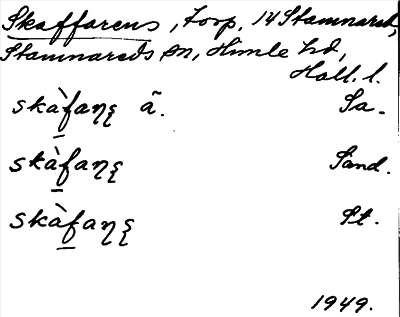 Skaffarens, torp, 14 Stamnared,
Stamnareds sn, Himle hd,
Hall. l.
skàfaης ã. Sa.
skàfaης Sand.
skàfaης St.
1949.